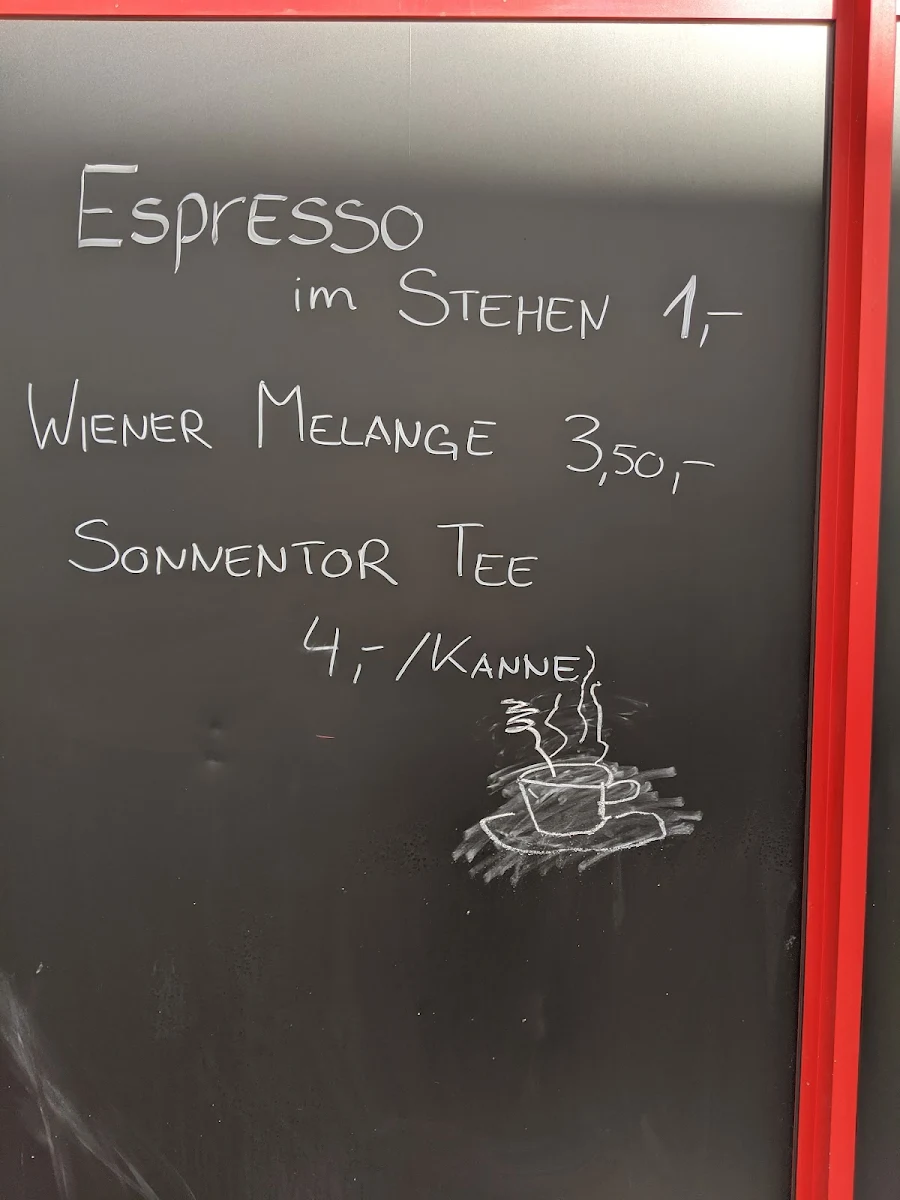 Espresso
im Stehen 1,-
Wiener Melange 3,50,-
Sonnentor Tee
4,- /Kanne